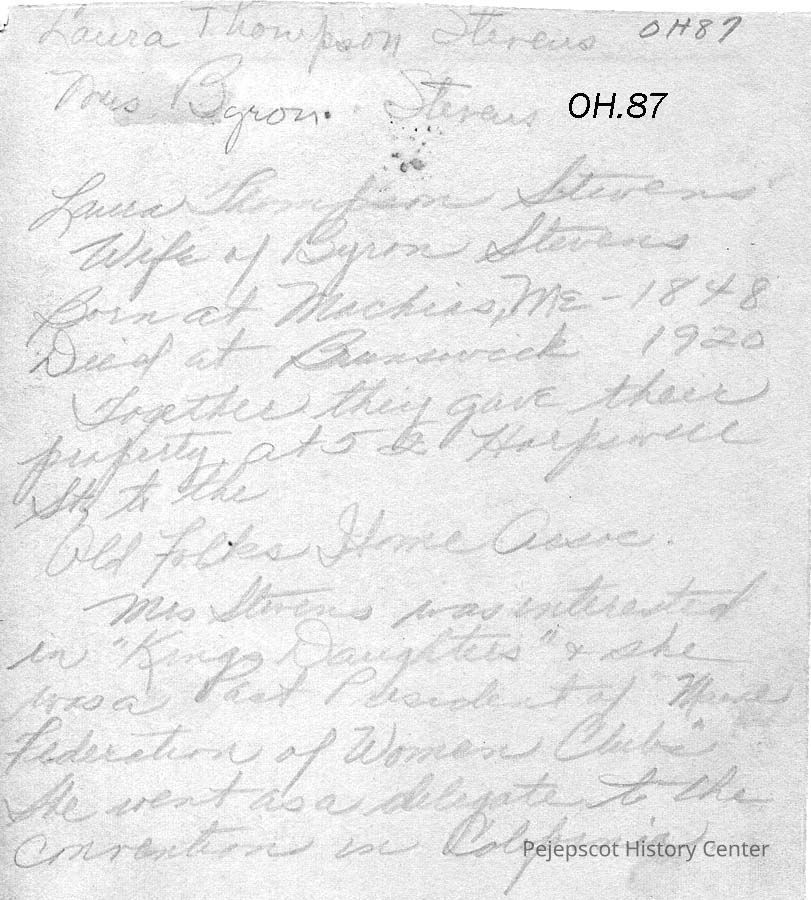 Laura Thompson Stevens OH87
Mrs Byron Stevens OH.87
Laura Thompson Stevens
Wife of Byron Stevens
Born at Machias, ME - 1848
Died at Brunswick 1920
Together they gave their
property at 52 Harpswell
St, to the
Old Folks Home Assoc.
Mrs Stevens was interested
in "Kings Daughters" & she
was a Past President of "Maine
Federation of Woman Clubs"
She went as a delegate to the
convention in California
Pejepscot History Center